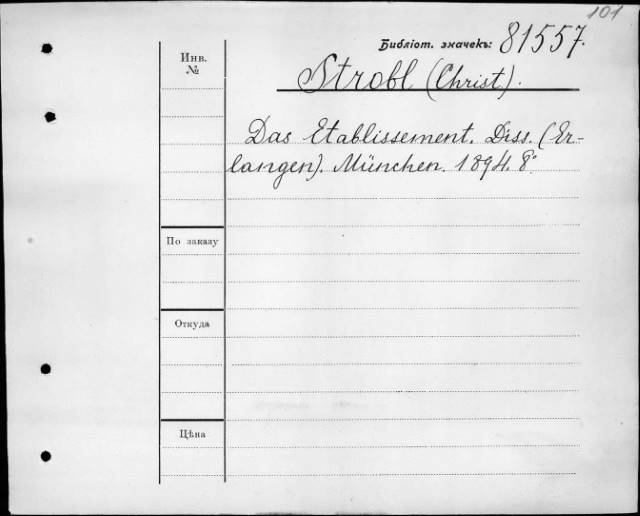 101
Библіот. значекъ: 81557.
Инв.
№
Strobl (Christ).
Das Etablissement. Diss. (Er-
langen). München. 1894. 8°
По заказу
Откуда
Цѣна